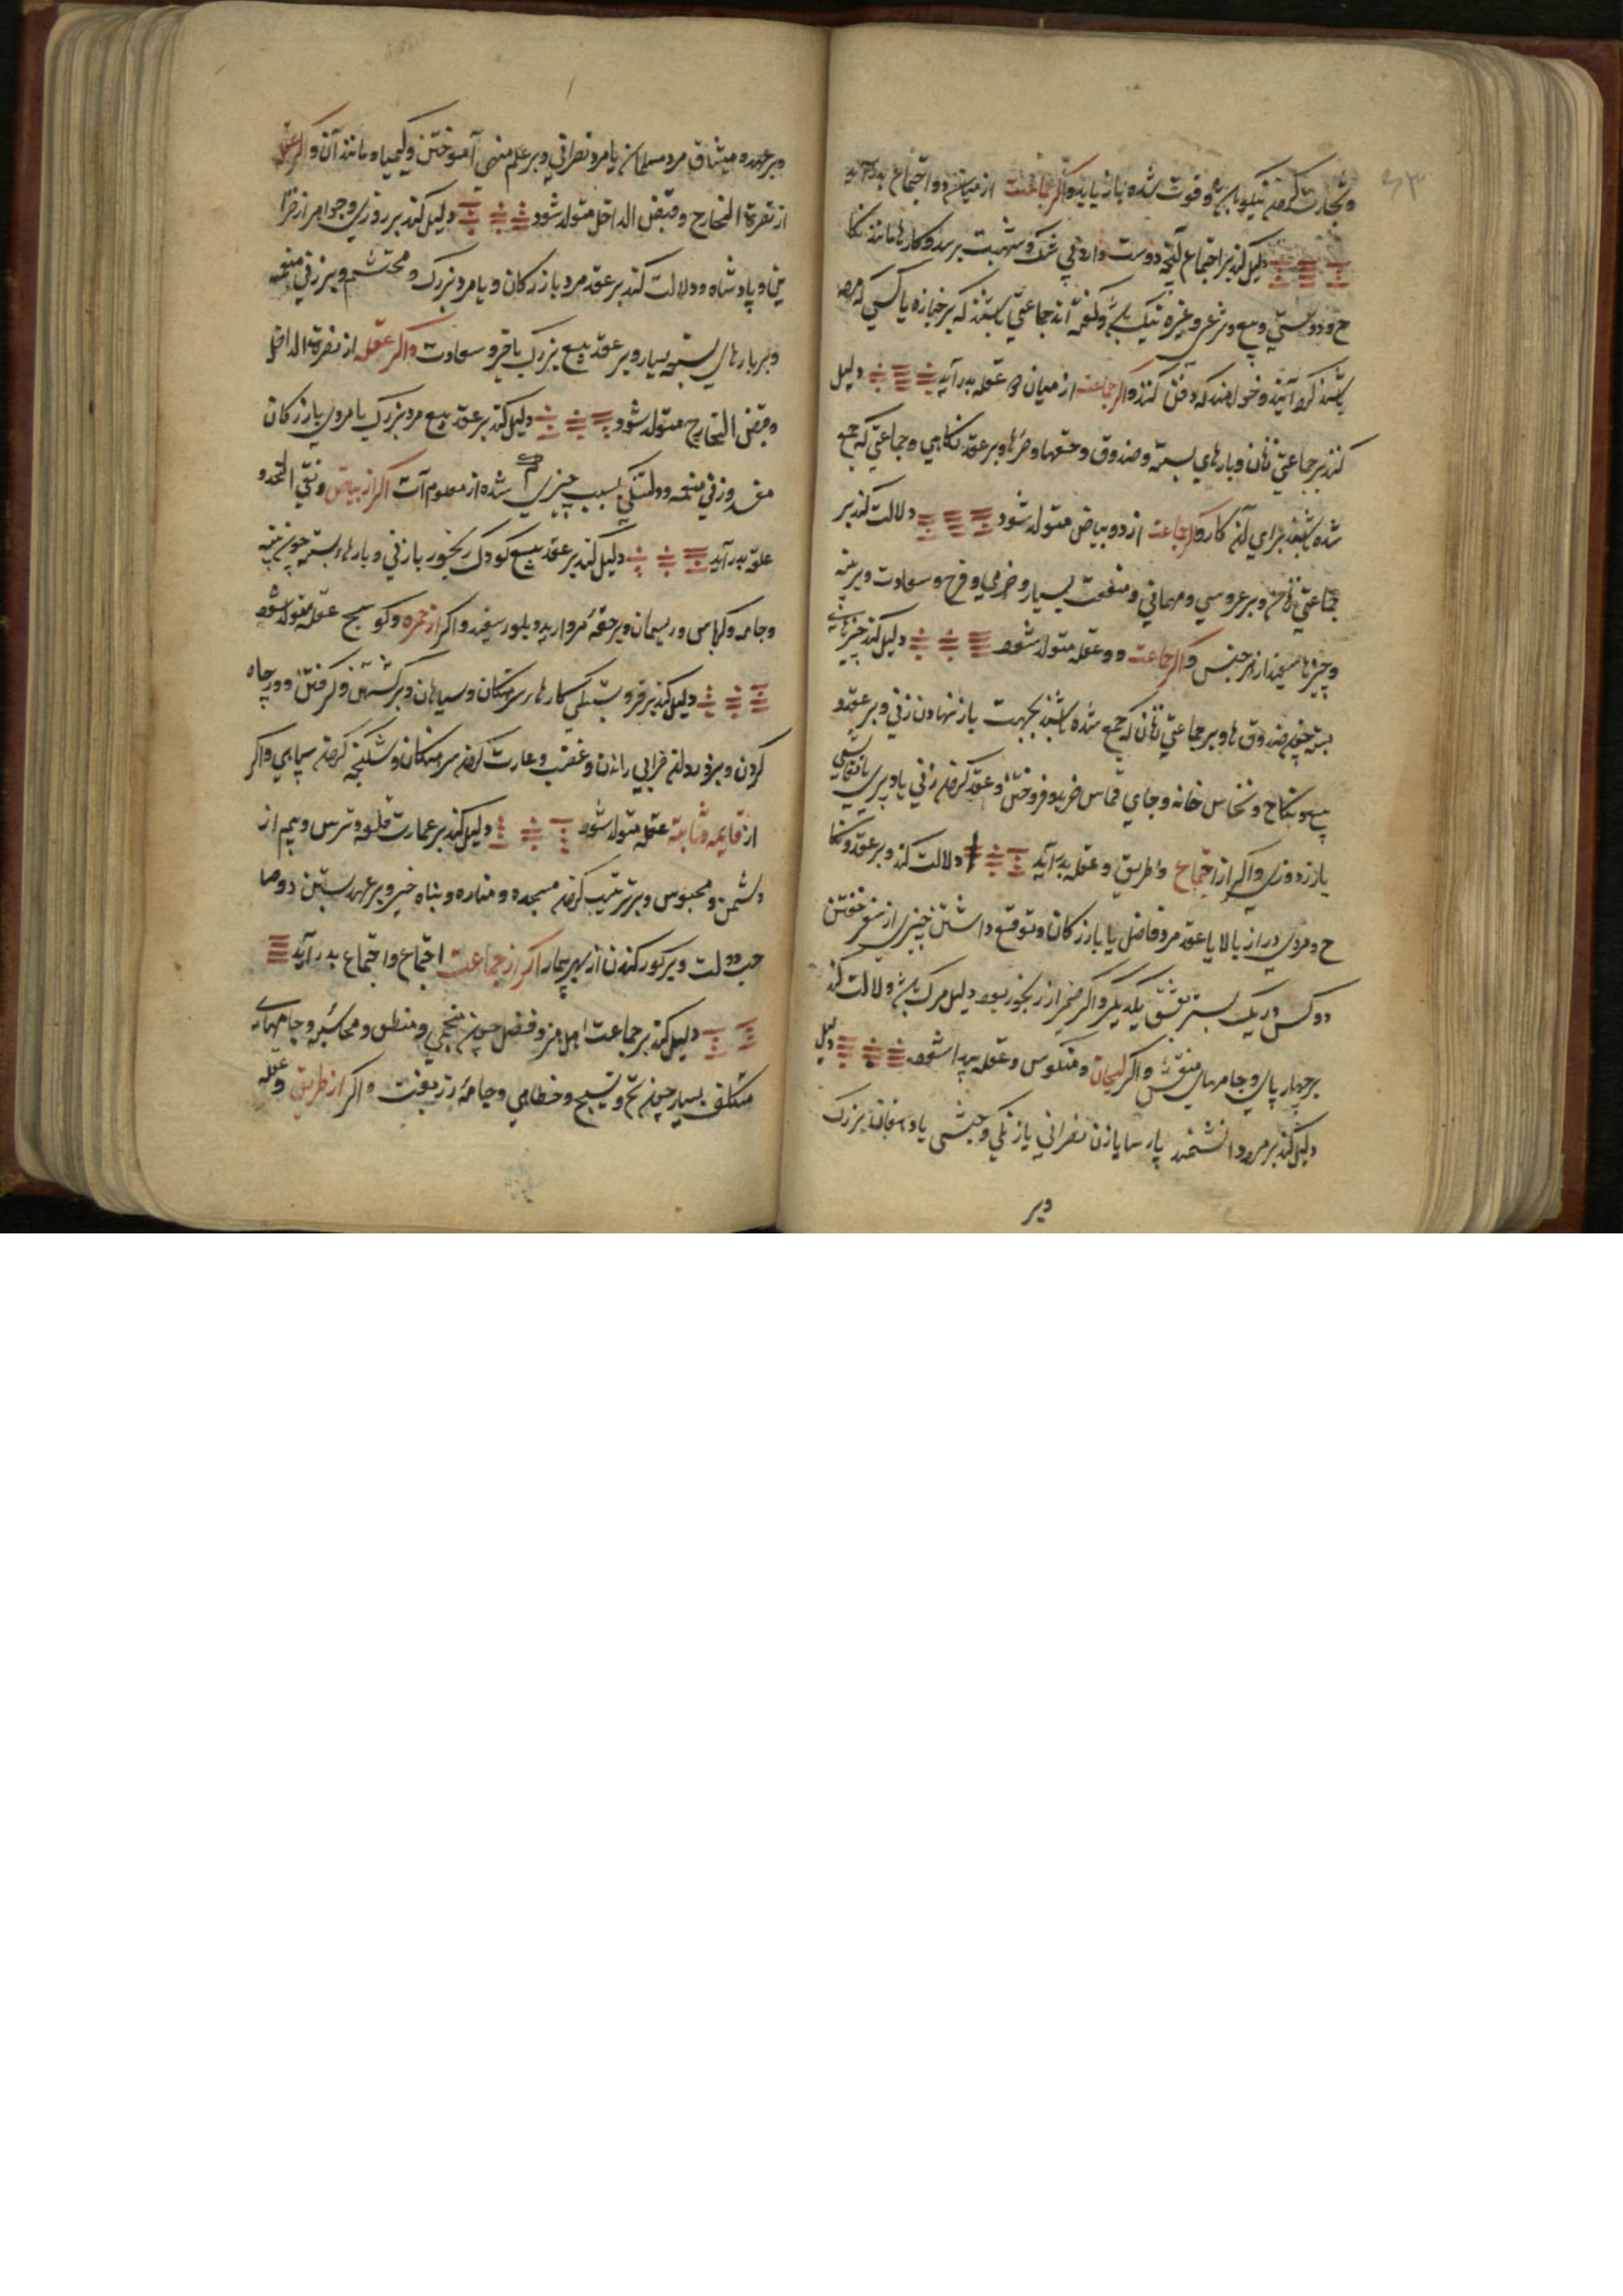 ۶۳
و تجارت کردن نیکو باشد و فوت شده باز یابد و اگر جماعت از میانه دو اجتماع بدر آید
دلیل کند بر اجتماع آنچه دوست دارد بی شک و شبهت برسد و کارها مانند نکا
ح و دوستی و بیع و شرعی و غیره نیک باشد و گفته اند جماعتی باشند که بر جنازه یا کسی که مرده
باشد گرد آیند و خواهند که دفن کنند و اگر جماعت از میان دو عقله بدر آید دلیل
کند بر جماعتی زنان و بارهای بسته و صندوق و حقها و بر عقد نکاحی و جماعتی که جمع
شده باشند برای آن کار و اگر جماعت از دو بیاض متولد شود دلالت کند بر
جماعتی زنان و بر عروسی و مهمانی و منفعت بسیار و خرمی و فرح و سعادت و بر پنبه
و چیزها سفید از هر جنس و اگر جماعت دو عقله متولد شود دلیل کند چیزهای
بسته چون صندوق ها و بر جماعتی زنان که جمع شده باشند بجهت باز نهادن زنی و بر عقد و
بیع و نکاح و نخاس خانه و جای قماس خرید و فروختن و عقد کردن زنی یا دبیری یا نقاشی
یا زردوزی و اگر از اجتماع و طریق و عقله بدر آید دلالت کند و بر عقد و نکا
ح و مردی دراز بالا یا عقد مرد فاضل یا بازرکان و توقع داشتن چیزی از سفر خفتن
دو کس در یک بستر بعشق یکدیگر و اگر ضمیر از رنجور بود دلیل مرگ باشد و دلالت کند
بر چهار پای و جامهای منقش و اگر لحیان و منکوس و عقله پیدا شود دلیل
دلیل کند بر مرد دانشمند پارسا یا زن نصرانی یا زنگی و حبشی یا دهقان بزرک
و بر
و بر عهد و میثاق مرد مسلمان یا مرد نصرانی و بر علم منهی آموختن و کیمیا و مانند آن و اگر عقله
از نصرة الخارج و قبض الداخل متولد شود دلیل کند بر روزی و جواهر از خزا
ین و پادشاه و دلالت کند بر عقد مرد بازرکان و یا مرد بزرک و محتشم و بر زنی منعمه
و بر بارهای بسته بسیار و بر عقد بیع بزرک با فر و سعادت و اگر عقله از نصرة الداخل
و قبض الخارج متولد شود دلیل کند بر عقد بیع مرد بزرک یا مردی بازرکان
و زنی منعمه و دلتنکی بسبب چیزی کم شده از معلوم آت اکر از بیاض و نقی الخد و
عقله بدر آید دلیل کند بر عقد بیع کودک رنجور یا زنی و بارهاء بسته چون پنبه
و جامه و کرباس و ریسمان و بر حقه مروارید و بلور سفید و اکر از حمره و کوسج عقله متولد شود
دلیل کند بر فروبستکی کارهاء سرهنکان و سپاهان و بر کشتن و کرفتن و در چاه
کردن و خرابی راندن و غضب و غارت کردن سرهنکان و شکنجه کردن سپاهی و اکر
از قایمه و ثابته عقله متولد شود دلیل کند بر عمارت قلعه و ترس و بیم از
دشمن و محبوس و بر ترتیب کردن مسجد و مناره و بناء خیر و بر عهد بستن دو صا
حب دولت و بر کور کندن از بهر بیمار اکر از جماعت اجتماع و اجتماع بدر آید
دلیل کند بر جماعت اهل هنر و فضل چون منجمی و منطق و محاسبه و جامهاء
متکلف بسیار چون نخ و نسیج و خطایی و جامه زربفت و اکر از طریق و عقله